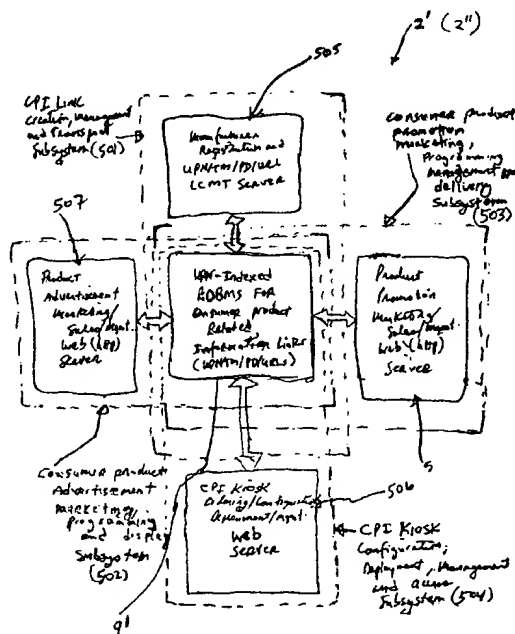 2' (2")
505
CPI LINK
Creation, Management
and Transport
Subsystem (501)
Manufacturer
Registration and
UPN/TM/PD/URL
LCMT SERVER
Consumer product
promotion
marketing,
Programming
management and
delivery
Subsystem
(503)
507
Product
Advertisement
Marketing
Sales/Mgmt.
Web (http)
Server
UPN-Indexed
RDBMS FOR
Consumer product
Related
Information Links
(UPN/TM/PD/URLs)
Product
Promotion
Marketing
Sales/Mgmt.
Web (http)
Server
Consumer product
Advertisement
marketing,
programming
and display
Subsystem
(502)
9'
CPI KIOSK
Ordering/Configuration
Deployment/Mgmt.
Web
SERVER
506
5
CPI KIOSK
Configuration,
Deployment, Management
and access
Subsystem (504)